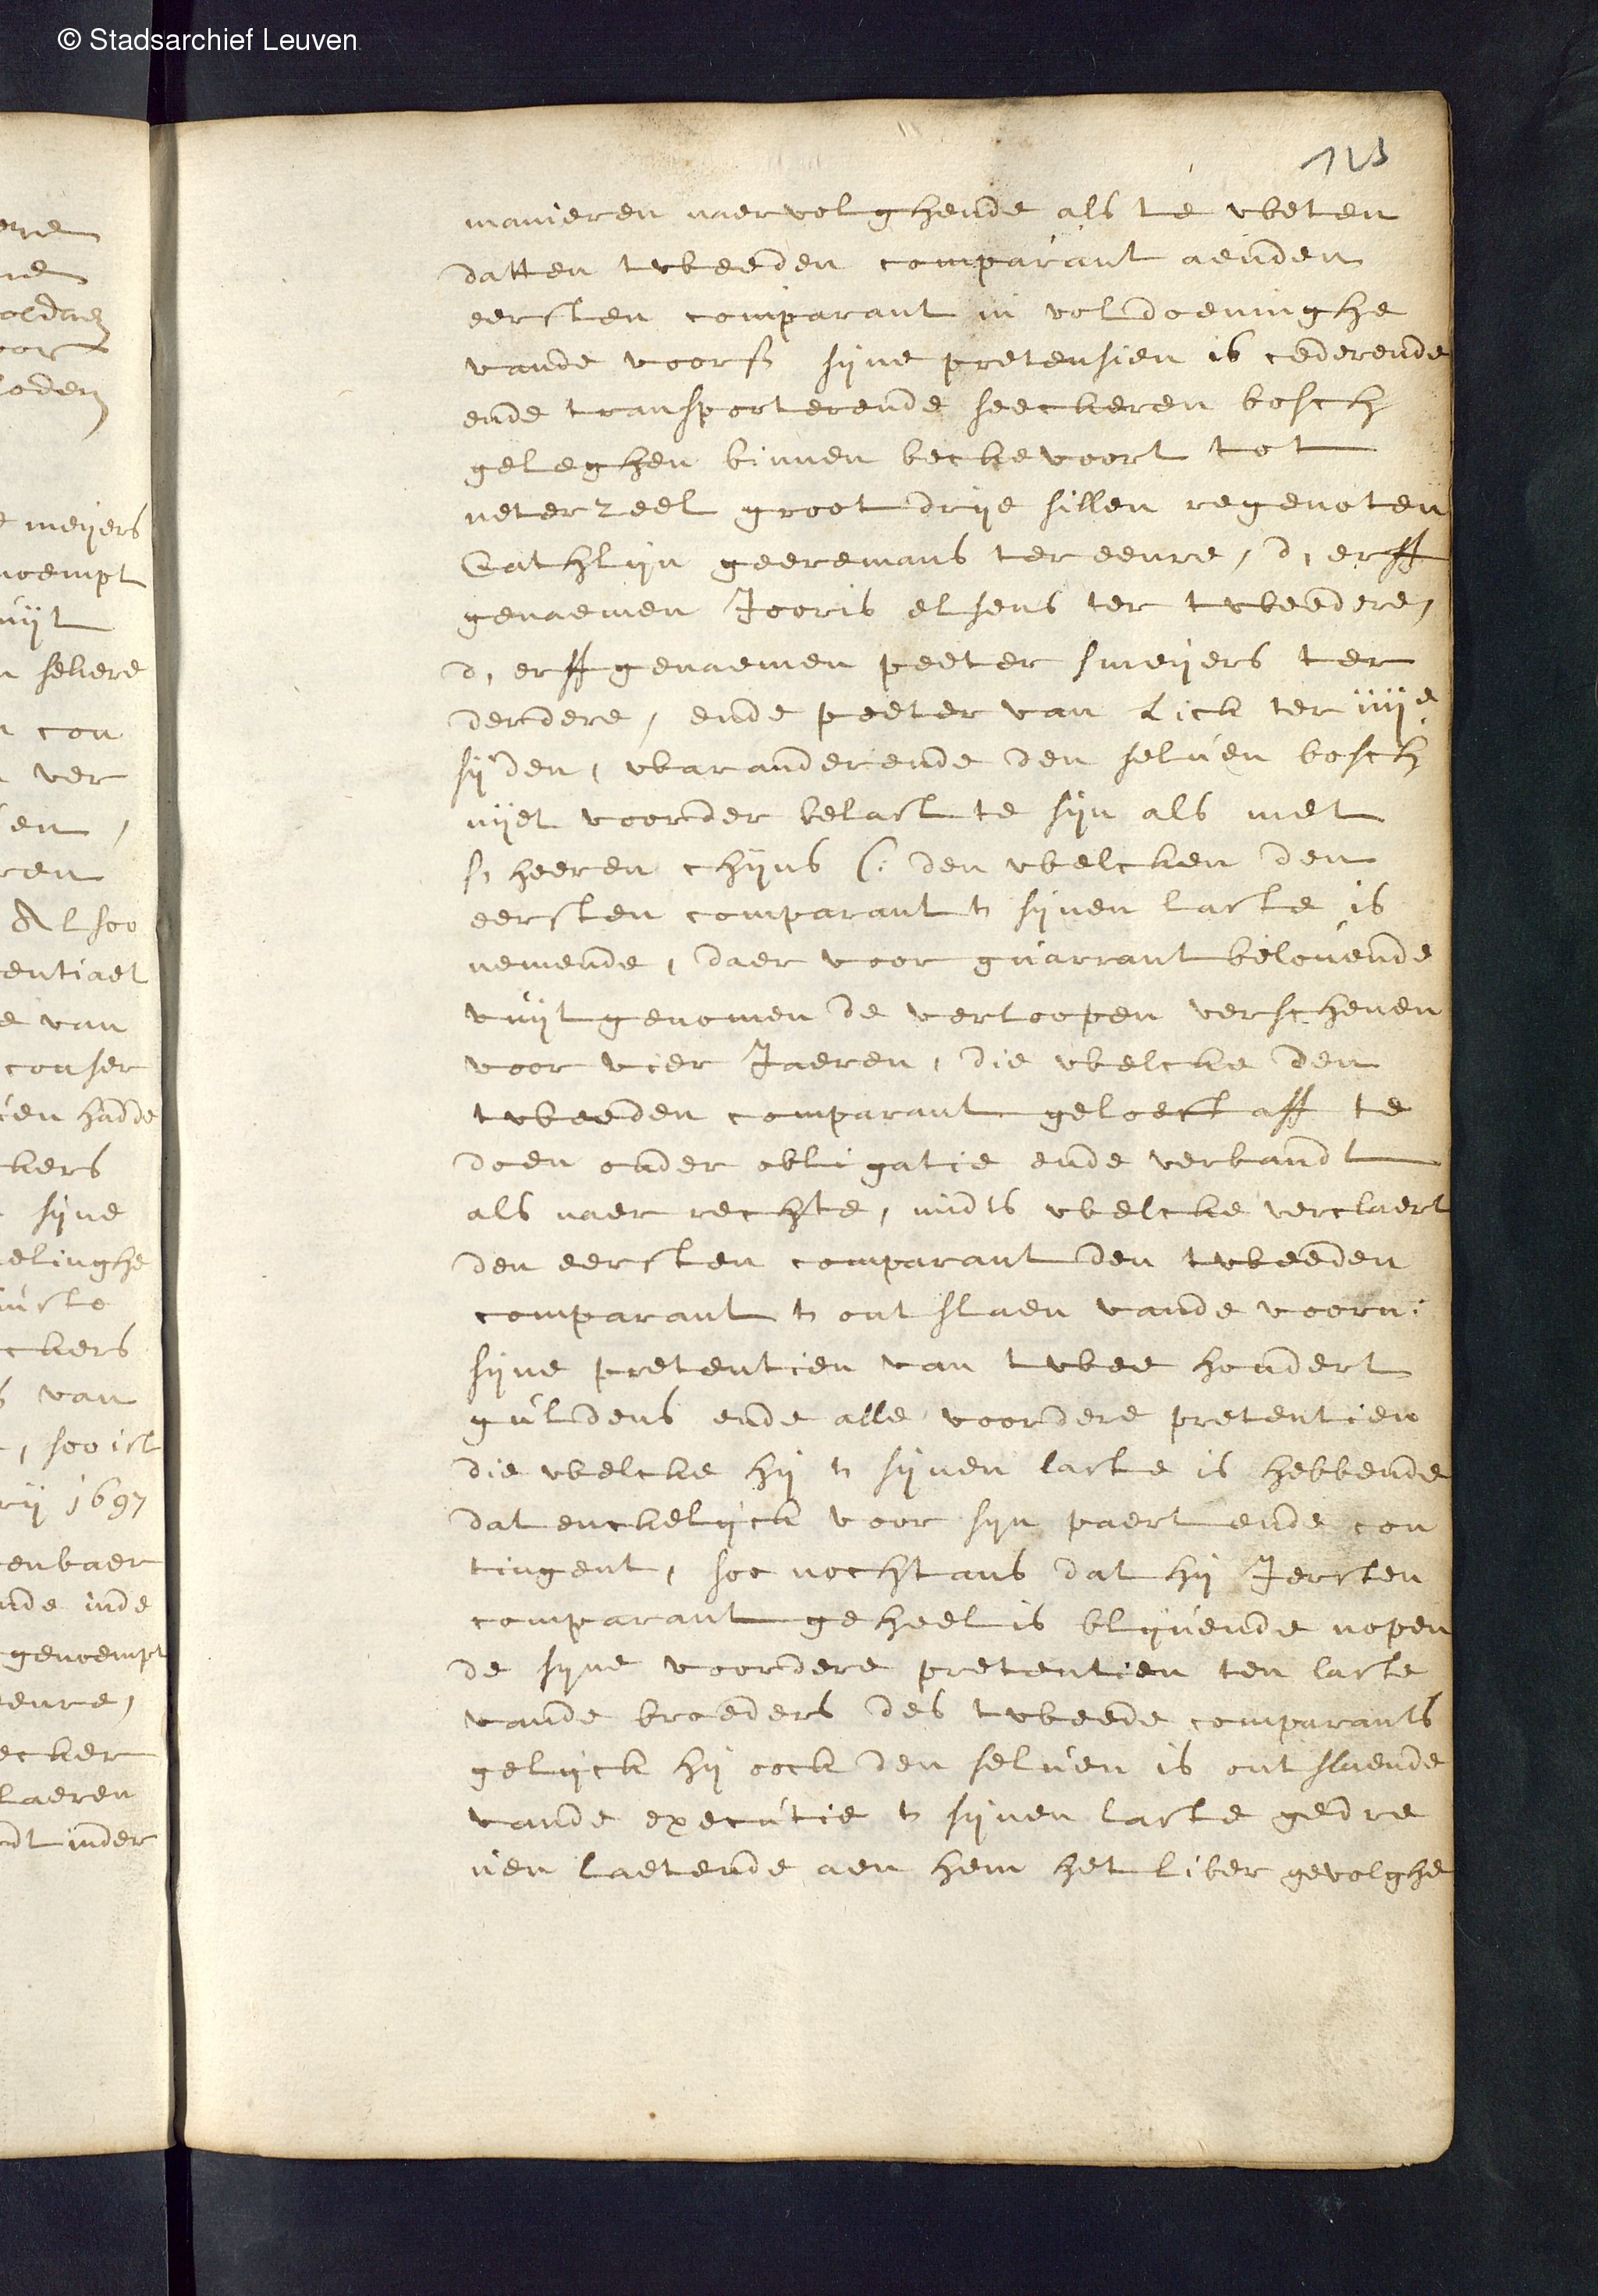 © Stadsarchief Leuven
manieren naervolghende als te weten
datten tweeden comparant aenden
eersten comparant in voldoeninghe
vande voors sijne pretensien is cederende
ende transporterende seeckeren bosch
geleghen binnen beckevoort tot
neterzeel groot drije sillen regenoten
Cathlijn geeremans ter eenre, d, erff
genaemen Jooris elsens ter tweedere,
d, erffgenaemen peeter smeijers ter
derdere, ende peeter van Lick ter iiije
sijden, waranderende den selven bosch
nijet voorder belast te sijn als met
s, heeren chijns (: den welcken den
eersten comparant tsijnen laste is
nemende, daer voor guarrant belovende
vuijtgenomen de verloopen verschenen
voor vier Jaeren, die welcke den
tweeden comparant geloeft aff te
doen onder obligatie ende verbandt
als naer rechte, midts welcke verclaert
den eersten comparant den tweeden
comparant t ontslaen vande voorn:
sijne pretentien van twee hondert
guldens ende alle voordere pretentien
die welcke hij tsijnen laste is hebbende
dat enckelijck voor sijn paert ende con
tingent, soo nochtans dat hij Jersten
comparant geheel is blijvende nopen
de sijne voordere pretentien ten laste
vande broeders des tweede comparants
gelijck hij oock den selven is ontslaende
vande executie tsijnen laste gedre
ven laetende aen hem het liber gevolghe
meijers
noempt
uijt
selvere
con
ver
Alsoo
entiaet
van
conser
en hadde
sijne
elinghe
van
, soo ist
rij 1697
enbaer
nde inde
genoempt
eenre,
ecker
laeren
dt inder